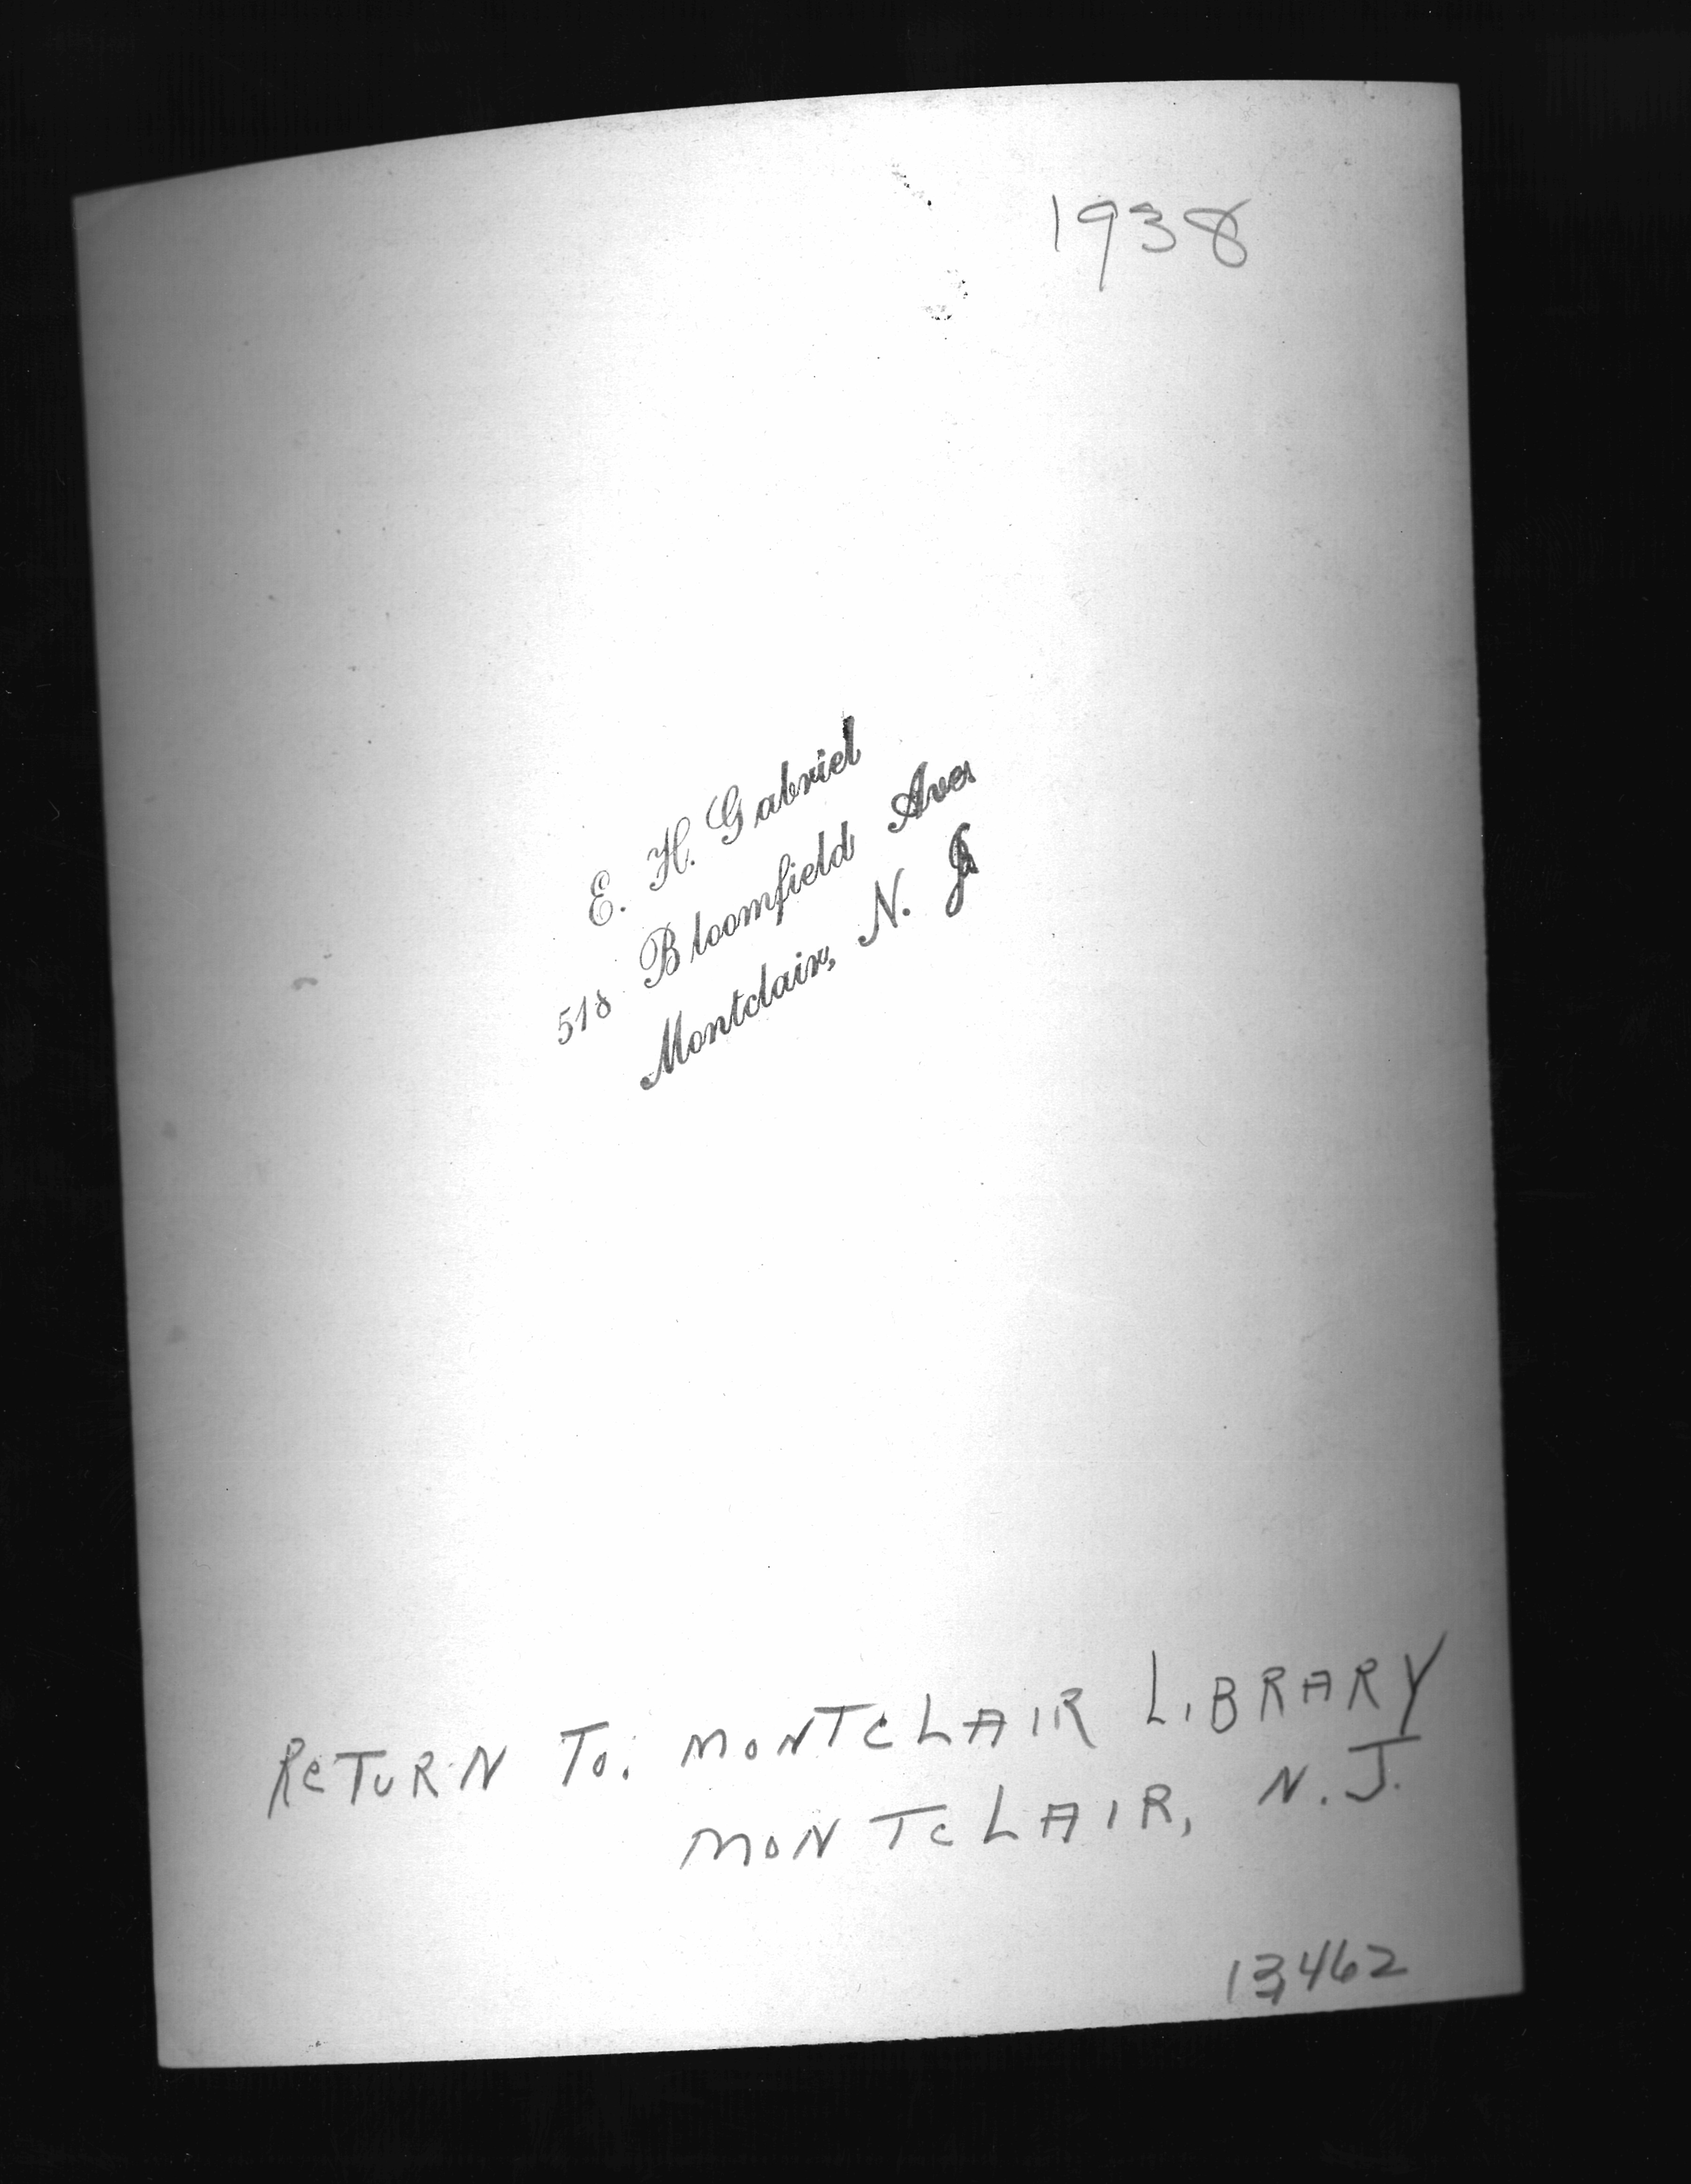 1938
E. H. Gabriel
518 Bloomfield Ave.
Montclair, N. J.
RETURN TO: MONTCLAIR LIBRARY
MONTCLAIR, N.J.
13,462